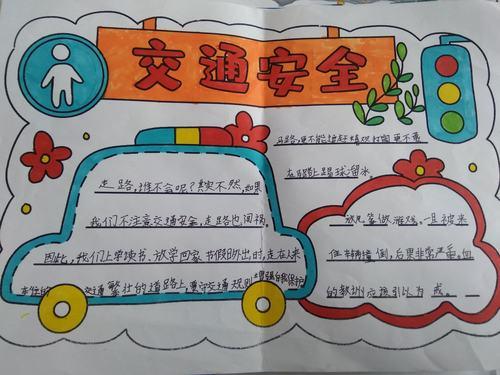 交通安全
走路,谁不会呢?其实不然,如果
我们不注意交通安全,走路也闯祸。
因此,我们上学读书、放学回家、节假日外出时,走在人来
交通繁壮的道路上,遵守交通规则,增强自我保护
马路,更不能追赶嬉戏打闹更不要
在马路上踢球溜冰
放风筝做游戏。一旦被来
往车辆撞倒,后果非常严重。血
的教训应该引以为戒。